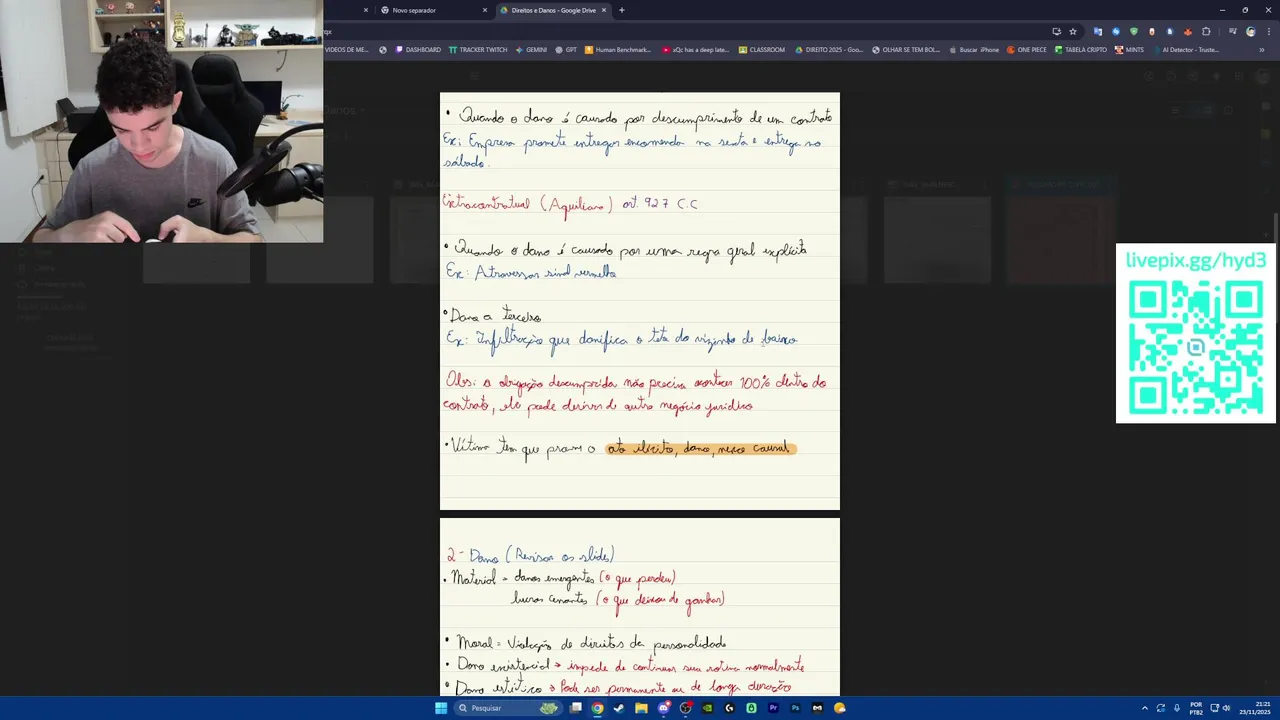 Novo separador
Direitos e Danos - Google Drive
VIDEOS DE ME...
DASHBOARD
TRACKER TWITCH
GEMINI
GPT
Human Benchmark...
xQc has a deep late...
CLASSROOM
DIREITO 2025 - Goo...
OLHAR SE TEM BOL...
Buscar iPhone
ONE PIECE
TABELA CRIPTO
MINTS
AI Detector - Truste...
• Quando o dano é causado por descumprimento de um contrato
Ex: Empresa promete entregar encomenda na sexta e entrega no
sábado.
Extracontratual (Aquiliano) art. 927 C.C
• Quando o dano é causado por uma regra geral explícita
Ex: Atravessar sinal vermelho
• Dano a terceiro
Ex: Infiltração que danifica o teto do vizinho de baixo
Obs: a obrigação descumprida não precisa acontecer 100% dentro do
contrato, ela pode derivar de outro negócio jurídico
• Vítima tem que provar o ato ilícito, dano, nexo causal
2- Dano (Revisar os slides)
• Material = danos emergentes (o que perdeu)
lucros cessantes (o que deixou de ganhar)
• Moral = Violação de direitos da personalidade
• Dano existencial → impede de continuar sua rotina normalmente
• Dano estético → Pode ser permanente ou de longa duração
livepix.gg/hyd3
Pesquisar
POR
PTB2
21:21
23/11/2025